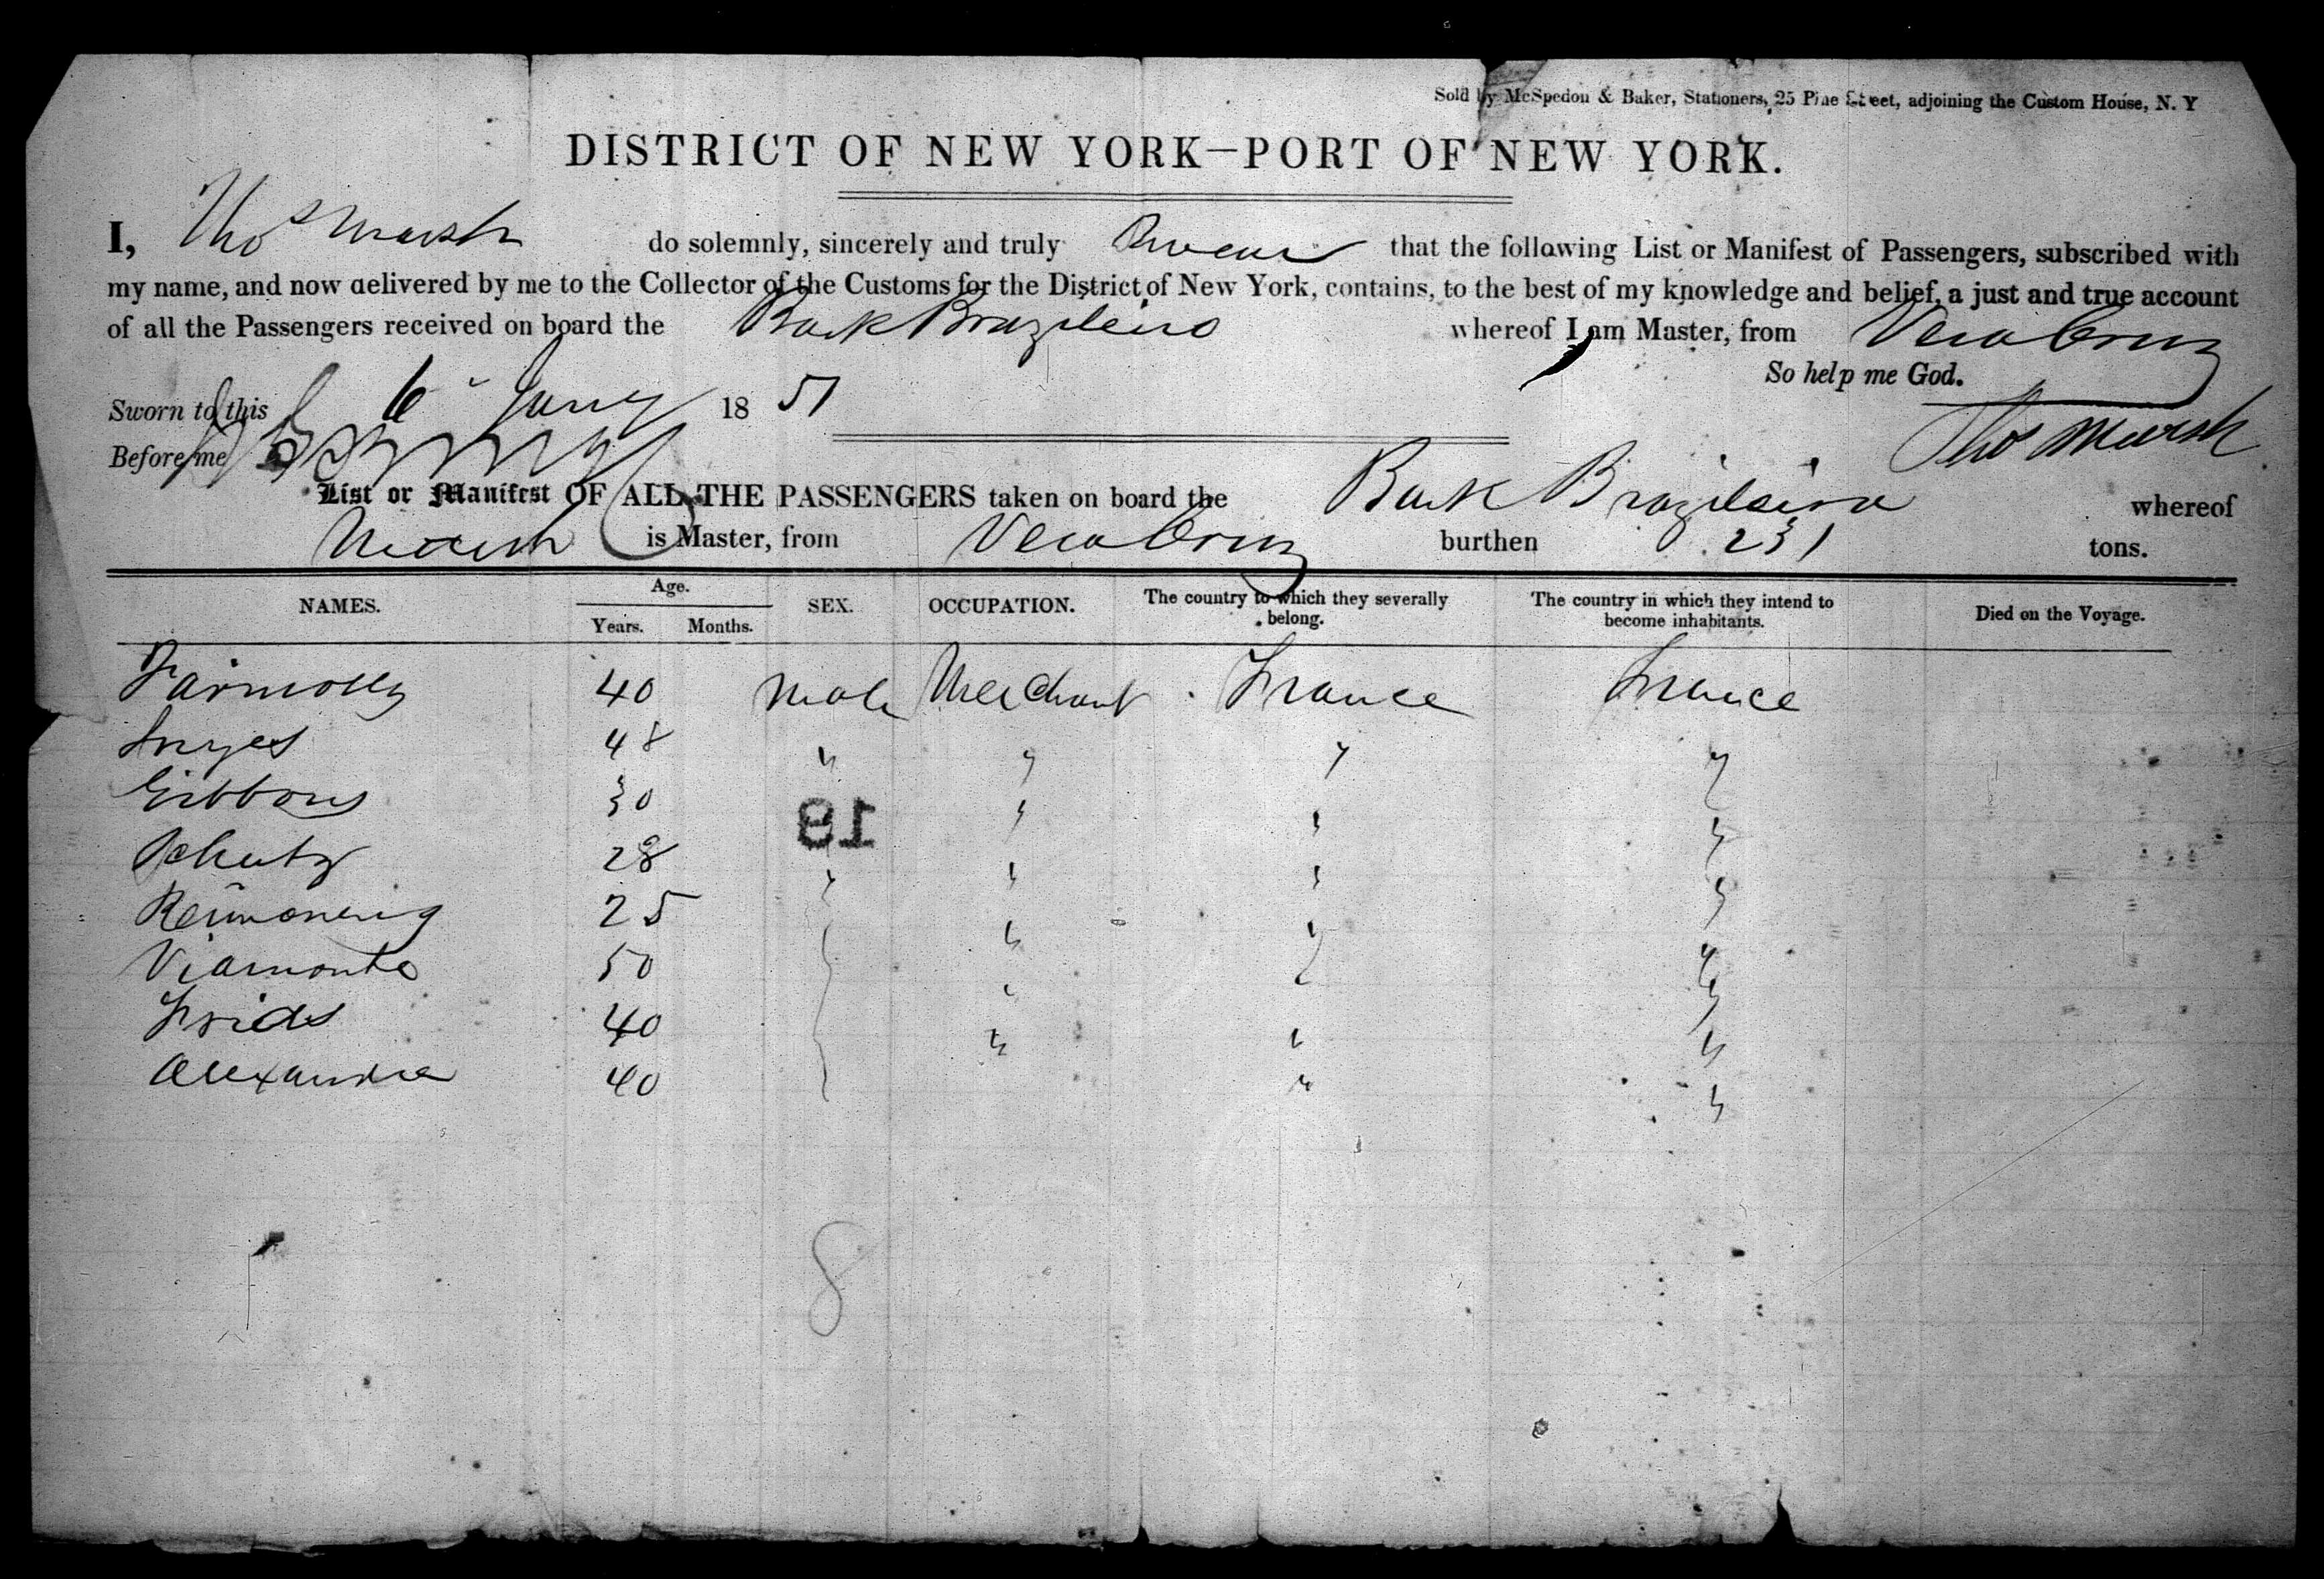 Sold by McSpedon & Baker, Stationers, 25 Pine Street, adjoining the Custom House, N. Y
DISTRICT OF NEW YORK—PORT OF NEW YORK.
I, Thos Marsh do solemnly, sincerely and truly Swear that the following List or Manifest of Passengers, subscribed with
my name, and now delivered by me to the Collector of the Customs for the District of New York, contains, to the best of my knowledge and belief, a just and true account
of all the Passengers received on board the Bark Brazileiro whereof I am Master, from Vera Cruz
So help me God.
Sworn to this 6 Jany 1851
Thos Marsh
Before me
List or Manifest OF ALL THE PASSENGERS taken on board the Bark Brazileiro whereof
Marsh is Master, from Vera Cruz burthen 231 tons.
NAMES. Age. Years. Months. SEX. OCCUPATION. The country to which they severally belong. The country in which they intend to become inhabitants. Died on the Voyage.
40 Male Merchant France France
48 " " " "
Gibbons 30 " " "
19
Schutz 28 " " " "
25 " " "
Viamonte 50 " "
40 " " "
Alexandre 40 " "
8